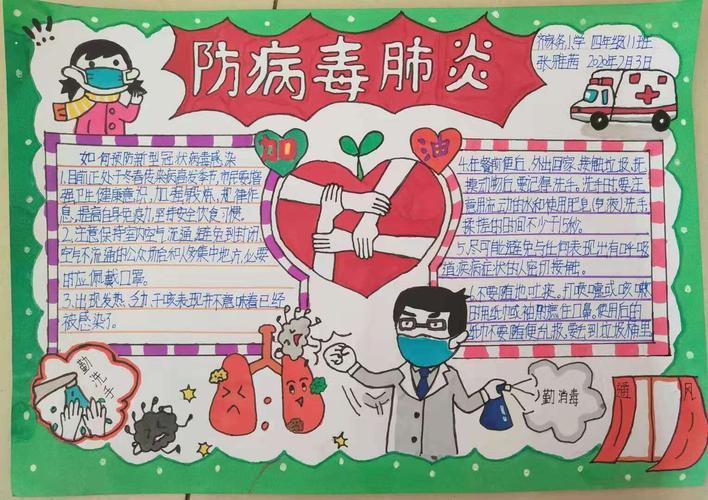 防病毒肺炎
务小学 四年级11班
张雅茜 2020年2月3日
加油
如何预防新型冠状病毒感染
1.目前正处于冬春传染病高发季节,市民要增
强卫生健康意识,加强锻炼,规律作
息,提高自身免疫力,坚持安全饮食习惯。
2.注意保持室内空气流通,避免到封闭
空气不流通的公众场合和人多集中地方,必要
时应佩戴口罩。
3.出现发热、乏力、干咳表现并不意味着已经
被感染了。
4.在餐前便后、外出回家、接触垃圾、抚
摸动物后,要记得洗手。洗手时要注
意用流动的水和使用肥皂(皂液)洗手,
揉搓的时间不少于15秒。
5.尽可能避免与任何表现出有呼吸
道疾病症状的人密切接触。
6.不要随地吐痰。打喷嚏或咳嗽
时用纸巾或袖肘遮住口鼻,使用后的
纸巾不要随便乱扔,要丢到垃圾桶里
勤洗手
勤消毒
通风